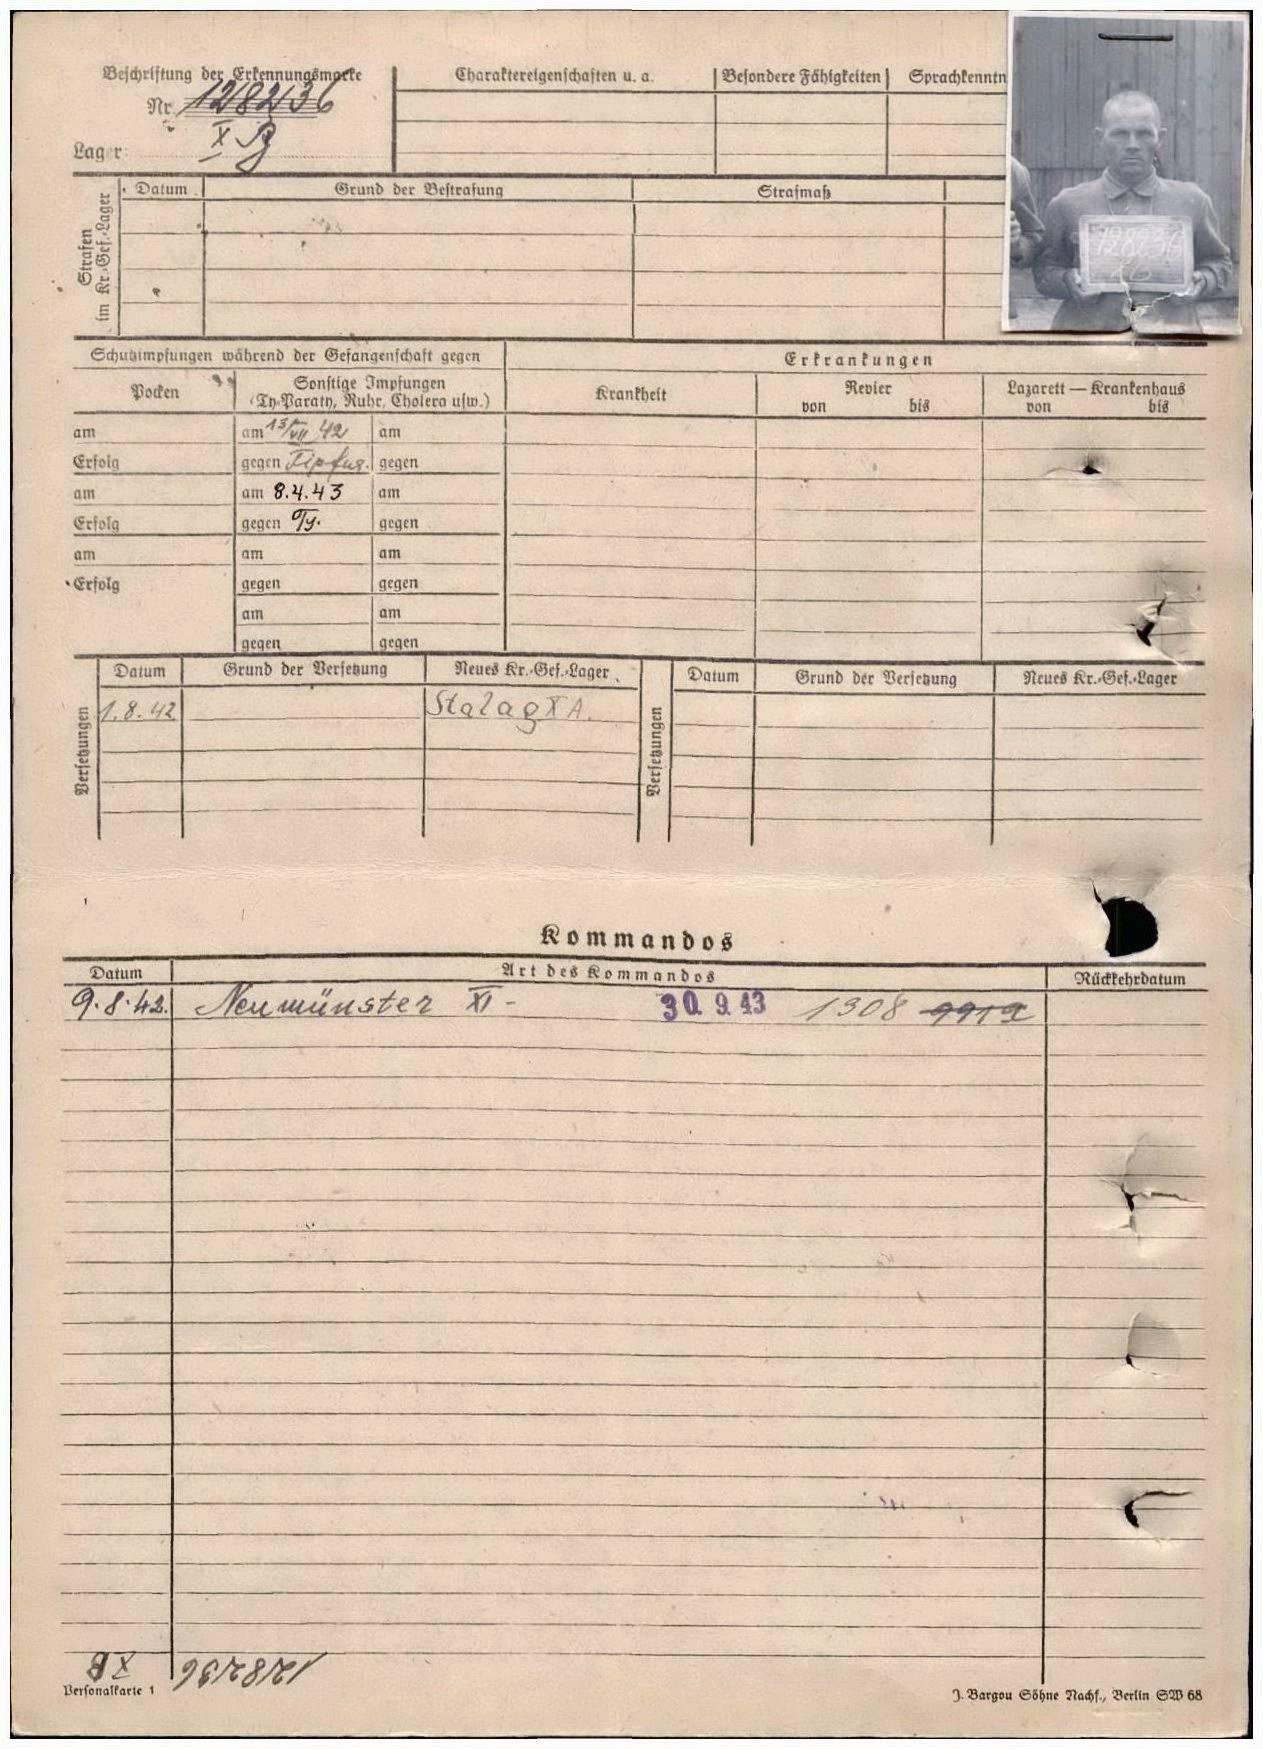 Beschriftung der Erkennungsmarke
Nr. 128236
Lager: X B
Charaktereigenschaften u. a. Besondere Fähigkeiten Sprachkenntn
128236
XB
Strafen im Kr.-Gef.-Lager
Datum Grund der Bestrafung Strafmaß
Schutzimpfungen während der Gefangenschaft gegen Erkrankungen
Pocken Sonstige Impfungen Krankheit Revier Lazarett — Krankenhaus
(Ty-Paraty, Ruhr, Cholera usw.) von bis von bis
am am 13/VII 42 am
Erfolg gegen gegen
am am 8.4.43 am
Erfolg gegen Ty. gegen
am am am
Erfolg gegen gegen
am am
gegen gegen
Versetzungen Datum Grund der Versetzung Neues Kr.-Gef.-Lager Versetzungen Datum Grund der Versetzung Neues Kr.-Gef.-Lager
1.8.42 Stalag X A.
Kommandos
Datum Art des Kommandos Rückkehrdatum
9.8.42. Neumünster XI - 30. 9. 43 1308
X B 128236
Personalkarte 1 J. Bargou Söhne Nachf., Berlin SW 68